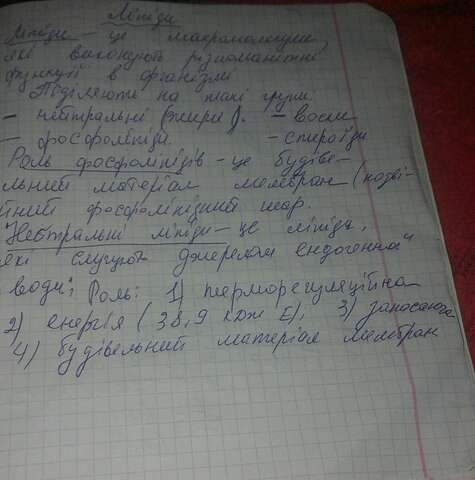 Ліпіди
Ліпіди - це макромолекули,
які виконують різноманітні
функції в організмі
Поділяють на такі групи:
- нейтральні (жири). - воски
- фосфоліпіди. - стероїди
Роль фосфоліпідів - це будіве-
льний матеріал мембран (подві-
йний фосфоліпідний шар.
Нейтральні ліпіди - це ліпіди,
які служать джерелом ендогенної
води; Роль: 1) терморегуляційна
2) енергія (38,9 кДж Е), 3) запасаюча
4) будівельний матеріал мембран